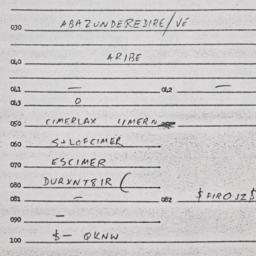 030 ABAZUNDEREDIRE/VÉ
040 ARIBE
041 — 042 —
043 0
050 CIMERLAX CIMERN
060 S+LOFCIMER
070 ESCIMER
080 DURXNT8IR (
081 — 082 $FIROJZ$
090 —
100 $— QKNW